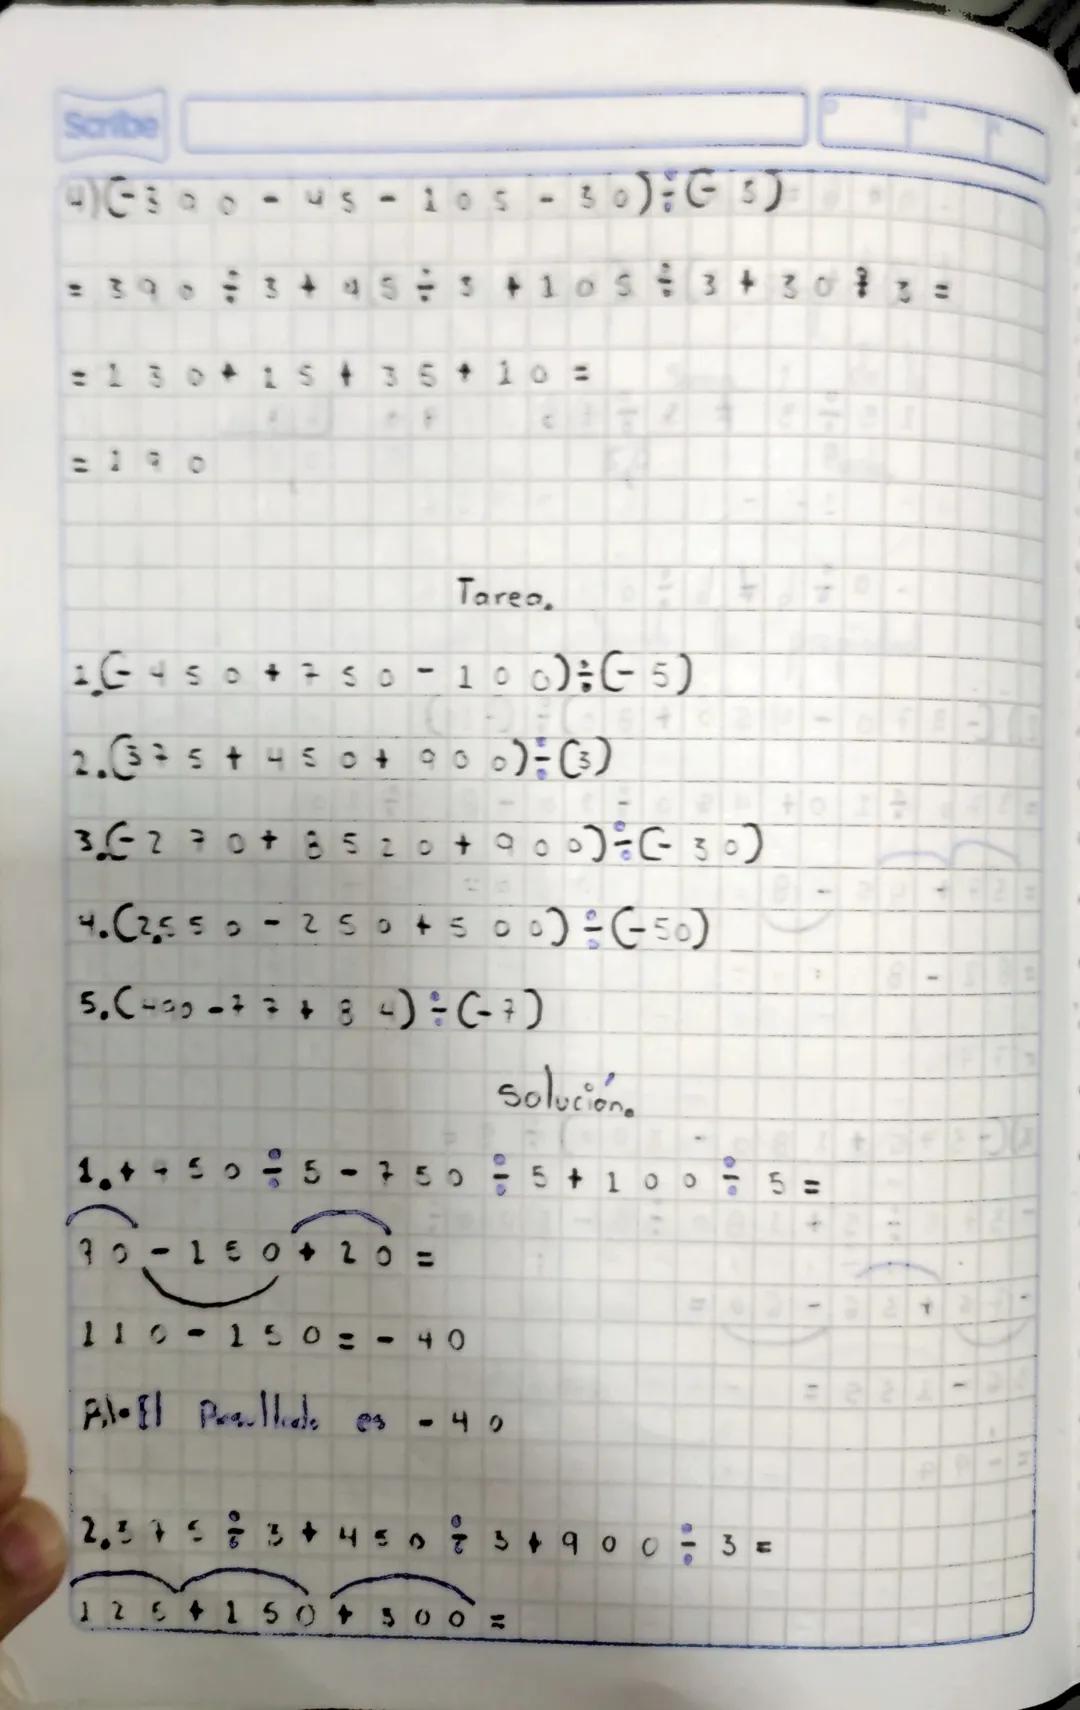 Scribe
4)(-390-45-105-30)÷(-3)
=390÷3+45÷3+105÷3+30÷3=
=130+15+35+10=
=190
Tarea.
1.(-450+750-100)÷(-5)
2.(375+450+900)÷(3)
3.(-270+8520+900)÷(-30)
4.(2,550-250+500)÷(-50)
5.(490-77+84)÷(-7)
Solución.
1.+450÷5-750÷5+100÷5=
90-150+20=
110-150=-40
R1.El Resultado es -40
2.375÷3+450÷3+900÷3=
125+150+300=